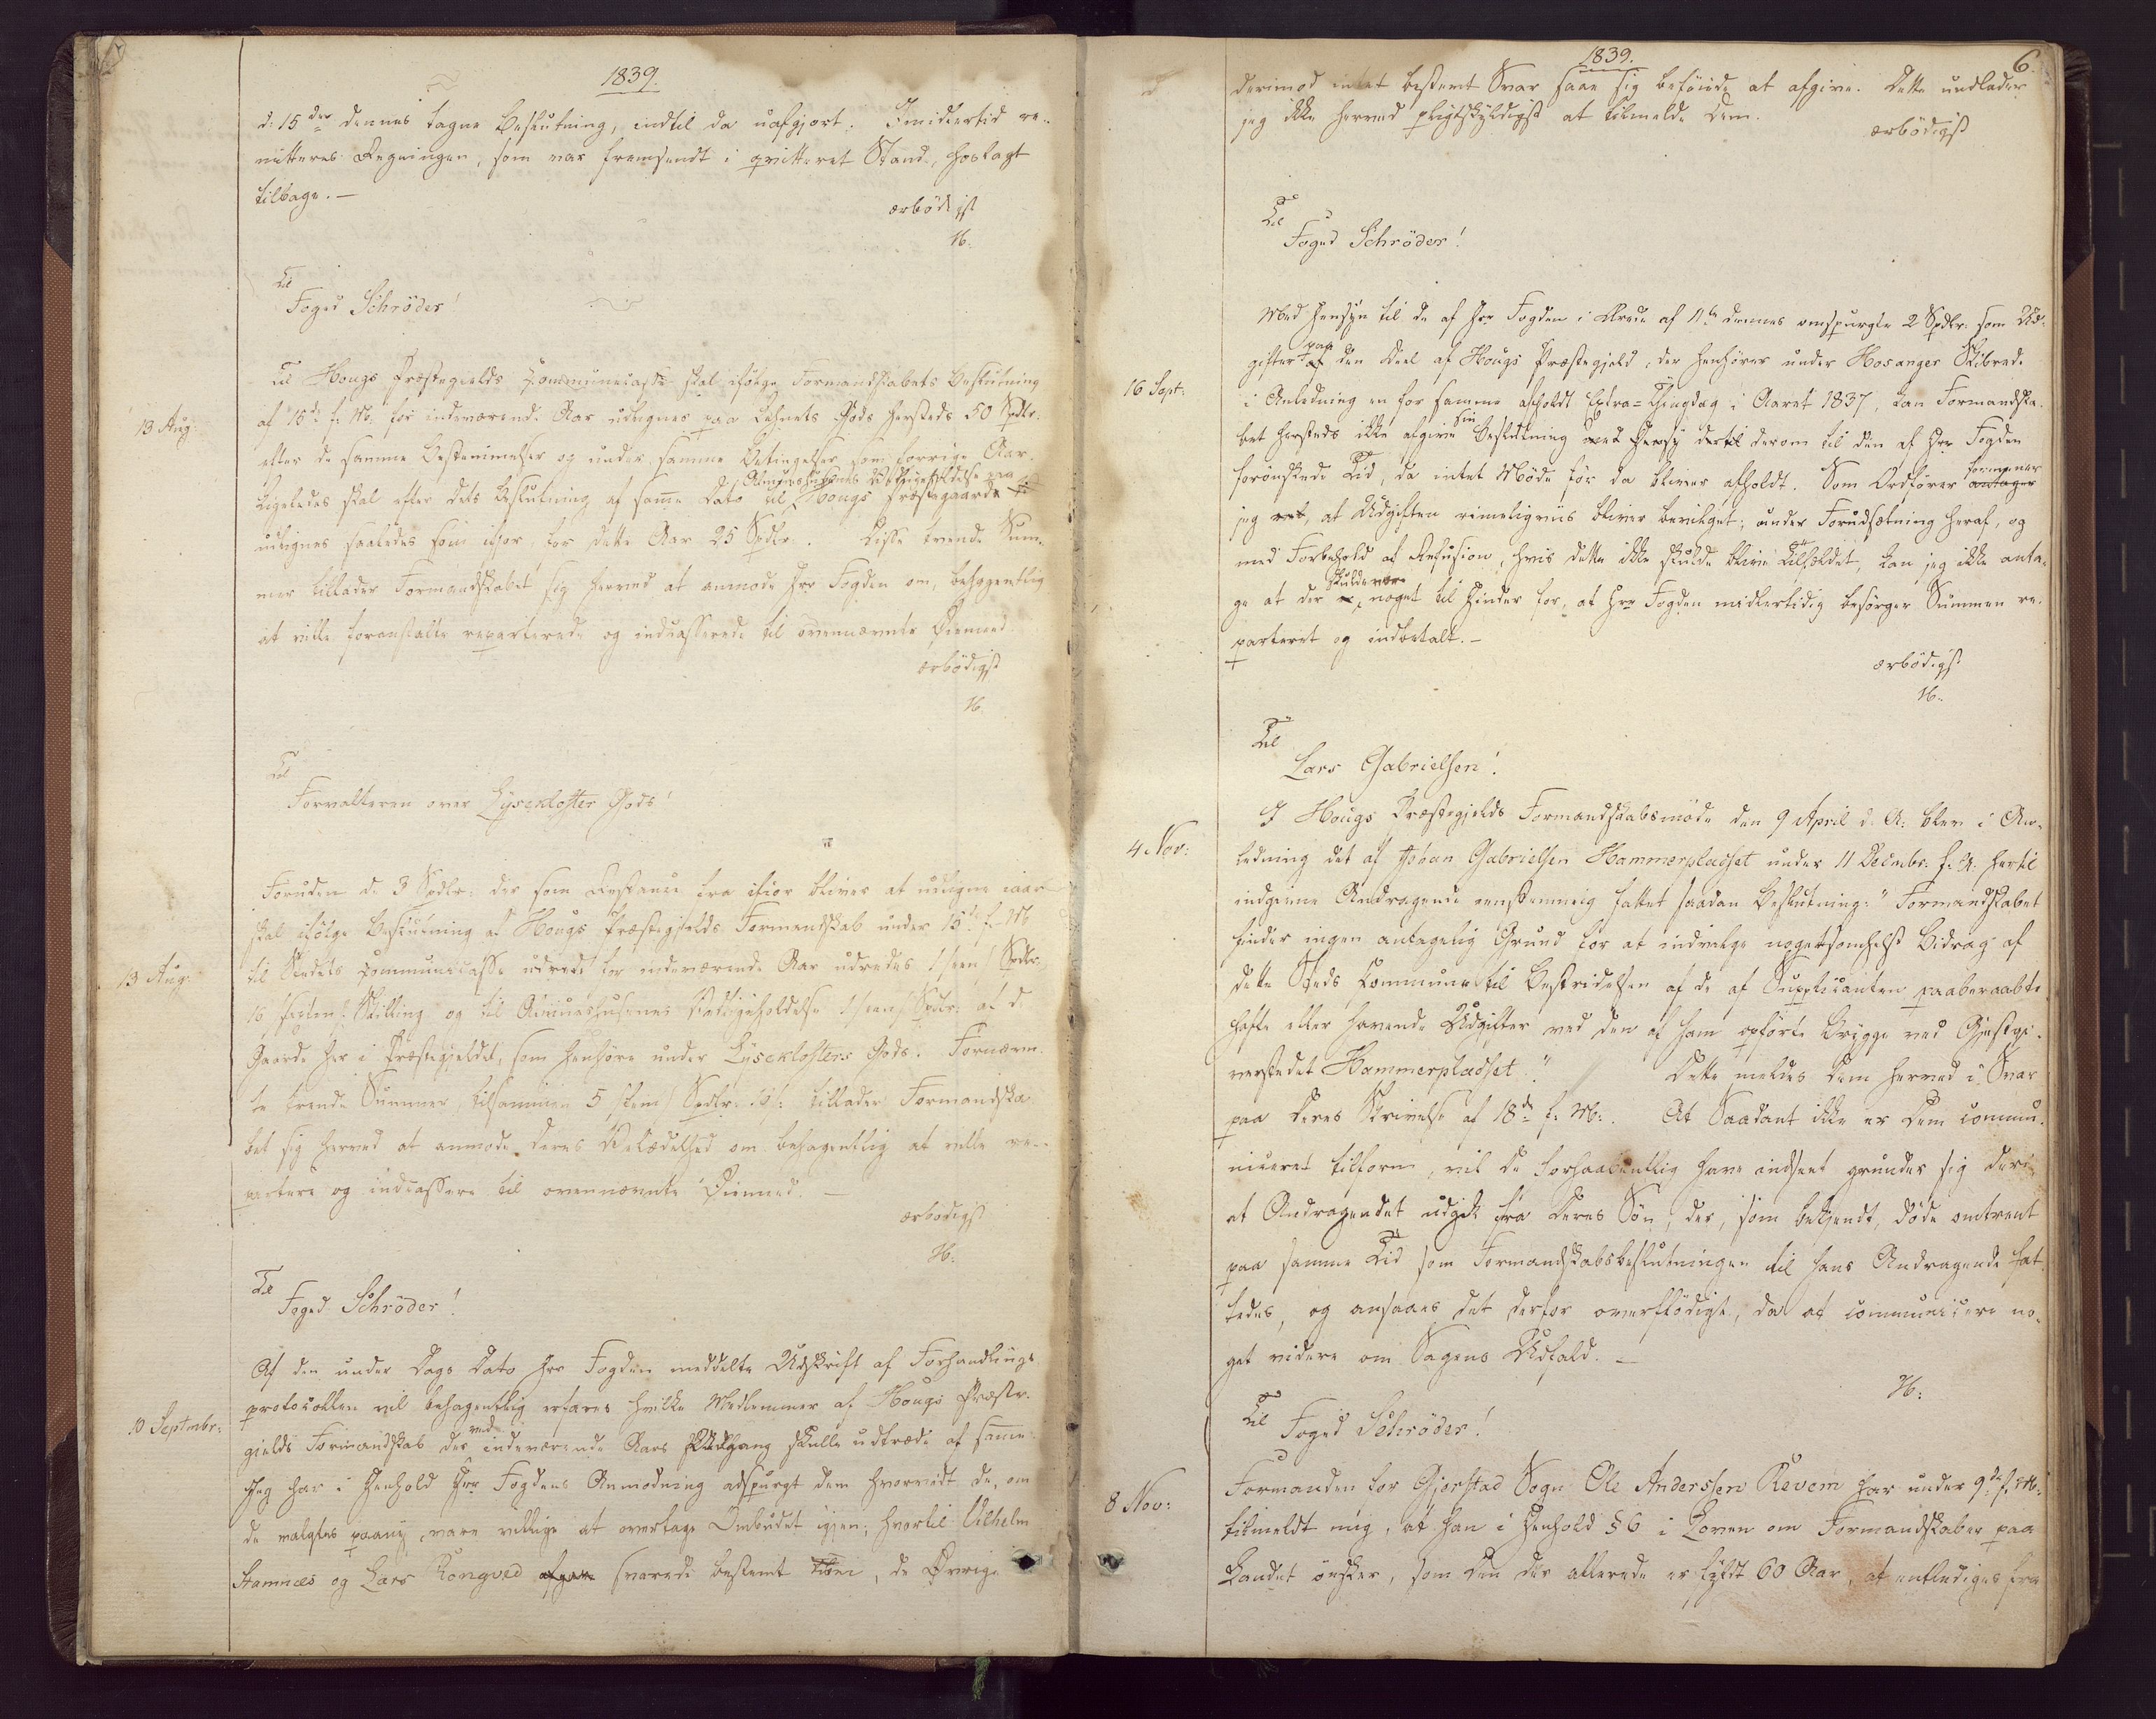 1839.
d: 15de dennes tagne Beslutning, indtil da uafgjort. Imidlertid re-
mitteres Regningen, som var fremsendt i qvitteret Stand, hoslagt
tilbage. —
ærbødigst
H.
Til
Foged Schröder!
13 Aug:
Til Hougs Præstegields Communecasse skal ifølge Formandskabets Beslutning
af 15de f. M. for indeværende Aar udlignes paa Lehnets Gods hersteds 50 Spdlr:
efter de samme Bestemmelser og under samme Betingelser som forrige Aar.
Almueshusenes Vedligeholdelse paa
Ligeledes skal efter dets Beslutning af samme Dato til Hougs Præstegaard
udlignes saaledes som ifjor, for dette Aar 25 Spdlr. Disse tvende Sum-
mer tillader Formandskabet sig herved at anmode Hrr Fogden om, behagentlig
at ville foranstalte reparterede og indcasserede til ovennævnte Øiemed
ærbødigst
H.
Til
Forvalteren over Lysekloster Gods!
13 Aug:
Foruden de 3 Spdlr: der som Restance fra ifior bliver at udligne iaar
skal ifølge Beslutning af Hougs Præstegjelds Formandskab under 15de f. M
til Stedets Communecasse udredt for indeværende Aar udredes 1 /een/ Spdlr,
16 /sexten/ Skilling og til Almueshusenes Vedligeholdelse 1 /een/ Spdlr: af d
Gaarde her i Præstegjeldet, som henhøre under Lyseklosters Gods. Fornævn-
te trende Summer tilsammen 5 /fem/ Spdlr: 16 s: tillader Formandska-
bet sig herved at anmode Deres Velædelhed om behagentlig at ville re-
partere og indcassere til ovennævnte Øiemed. —
ærbødigst
H.
Til
Foged Schröder!
10 Septmbr:
Af den under Dags Dato Hrr Fogden meddelte Udskrift af Forhandlings
protocollen vil behagentlig erfares hvilke Medlemmer af Hougs Præste-
ved
gjelds Formandskab der indeværende Aars Udgang skulle udtræde af samme.
Jeg har i Henhold Hrr Fogdens Anmodning adspurgt dem hvorvidt de, om
de valgtes paany, vare villige at overtage Ombudet igjen; hvortil Vilhelm
Stamnæs og Lars Rongved svarede bestemt Nei, de Øvrige
1839.
6.
derimod intet bestemt Svar saae sig beføiede at afgive. Dette undlader
jeg ikke herved pligtskyldigst at tilmelde Dem.
ærbödigst
Til
Foged Schröder!
16 Sept:
Med Hensyn til de af Hrr Fogden i Brev af 11te dennes omspurgte 2 Spdlr: som Ud-
paa
gifter af den Deel af Hougs Præstegjeld, der henhører under Hosanger Skibrede
i Anledning en for samme afholdt Extra-Thingdag i Aaret 1837, kan Formandska-
sin
bet hersteds ikke afgive Beslutning med Hensy dertil derom til den af Hrr Fogden
forønskede Tid, da intet Møde før da bliver afholdt. Som Ordfører antager
formener
jeg, at Udgiften rimeligviis bliver bevilget; under Forudsætning heraf, og
med Forbehold af Refusion, hvis dette ikke skulde blive Tilfældet, kan jeg ikke anta-
skulde være
ge at der er noget til Hinder for, at Hrr Fogden midlertidig besørger Summen re-
parteret og indbetalt. —
ærbödigst
H.
Til
Lars Gabrielsen!
4 Nov:
I Hougs Præstegjelds Formandskabsmøde den 9 April d. A: blev i An-
ledning det af Johan Gabrielsen Hammerpladset under 11 Decmbr: f. A: hertil
indgivne Andragende eenstemmig fattet saadan Beslutning: "Formandskabet
finder ingen antagelig Grund for at indvilge nogetsomhelst Bidrag af
dette Steds Commune til Bestridelsen af de af Supplicanten paaberaabte
hafte eller havende Udgifter ved den af ham opførte Brygge ved Gjæstgi-
verstedet Hammerpladset." Dette meldes Dem herved i Svar
paa Deres Skrivelse af 18de f. M:. At Saadant ikke er Dem commu-
niceret tilforn, vil De forhaabentlig have indseet grunder sig deri
at Andragendet udgik fra Deres Søn, der, som bekjendt, døde omtrent
paa samme Tid som Formandskabsbeslutningen til hans Andragende fat-
tedes, og ansaaes det derfor overflødigt, da at communicere no-
get videre om Sagens Udfald. —
H:
Til
Foged Schröder!
8 Nov:
Formanden for Gjerstad Sogn Ole Anderssen Revem har under 9de f. M:
tilmeldt mig, at han i Henhold § 6 i Loven om Formandskaber paa
Landet ønsker, som Den der allerede er fyldt 60 Aar, at entlediges fra